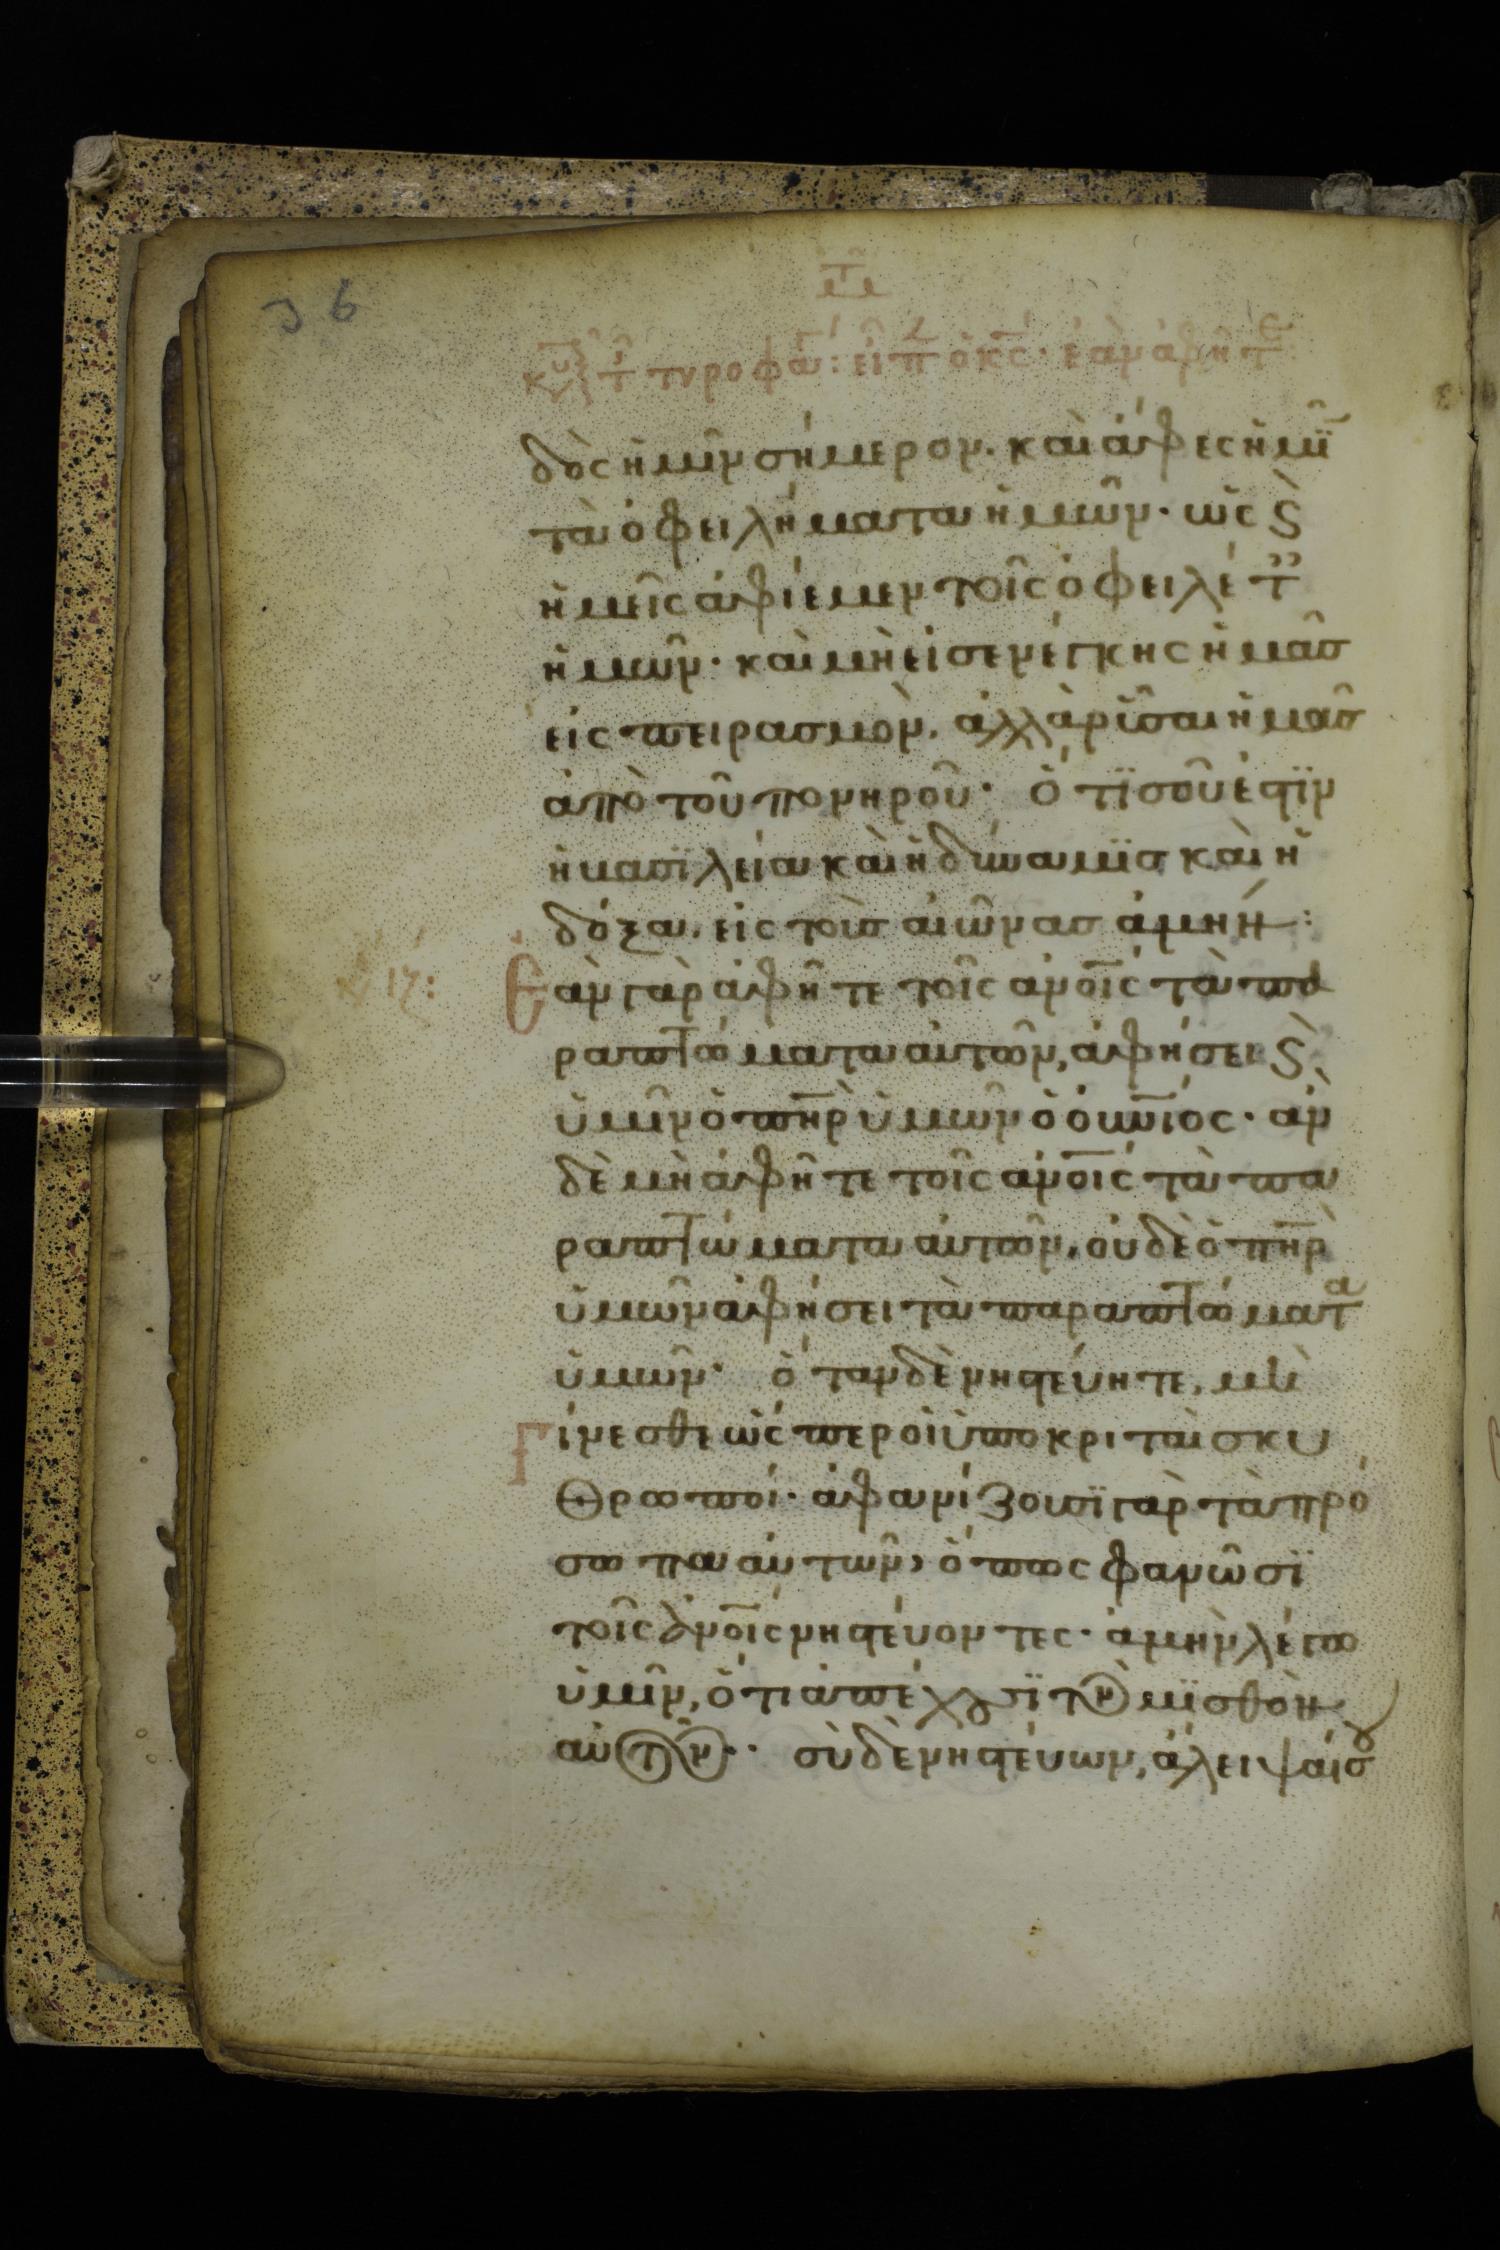 36
κυ τ τυροφα: ειπ ὁ κς· ἐὰν ἀφῆτε
δὸς ἡμῖν σήμερον. καὶ ἄφες ἡμῖ
τὰ ὀφειλήματα ἡμῶν· ὡς ϗ
ἡμεῖς ἀφίεμεν τοῖς ὀφειλέτ
ἡμῶν· καὶ μὴ εἰσενέγκης ἡμᾶσ
εἰς πειρασμὸν. ἀλλὰ ρῦσαι ἡμᾶσ
ἀπὸ τοῦ πονηροῦ· ὅτϊ σοῦ ἐστϊν
ἡ βασϊλεία καὶ ἡ δύναμϊσ καὶ ἡ
δόξα. εἰς τοὺσ αἰῶνασ ἀμήν:
Ἐὰν γὰρ ἀφῆτε τοῖς ἀνοις τὰ πα
ραπτώματα αὐτῶν, ἀφήσει ϗ
ὑμῖν ὁ πηρ ὑμῶν ὁ οὐνιος· ἀν
δὲ μὴ ἀφῆτε τοῖς ἀνοις τὰ πα
ραπτώματα αὐτῶν, οὐδὲ ὁ πηρ
ὑμῶν ἀφήσει τὰ παραπτώματα
ὑμῶν· ὅταν δὲ νηστεύητε, μὴ
Γίνεσθε ὥσπερ οἱ ὑποκριταὶ σκυ
θρωποί· ἀφανίζουσϊ γὰρ τὰ πρό
σωπα αὐτῶν, ὅπως φανῶσϊ
τοῖς ἀνοις νηστεύοντες· ἀμὴν λέγω
ὑμῖν, ὅτι ἀπέχουσϊ τὸν μϊσθὸν
αὐτῶν·· σὺ δὲ νηστεύων, ἄλειψαί σου